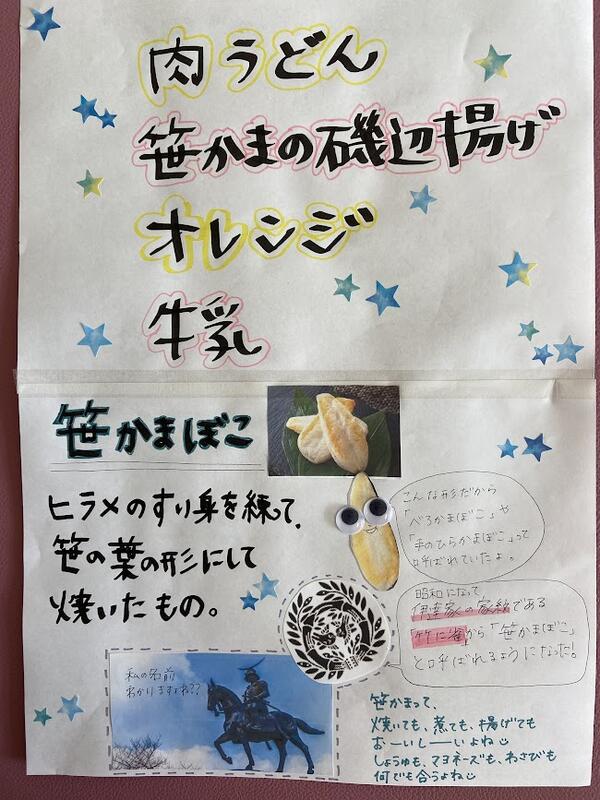 肉うどん
笹かまの磯辺揚げ
オレンジ
牛乳
笹かまぼこ
ヒラメのすり身を練って、
笹の葉の形にして
焼いたもの。
こんな形だから
「べろかまぼこ」や
「手のひらかまぼこ」って
呼ばれていたよ。
昭和になって、
伊達家の家紋である
「竹に雀」から「笹かまぼこ」
と呼ばれるようになった!
私の名前
わかりますよね??
笹かまって、
焼いても、煮ても、揚げても
おーいしーいよね
しょうゆも、マヨネーズも、わさびも
何でも合うよね